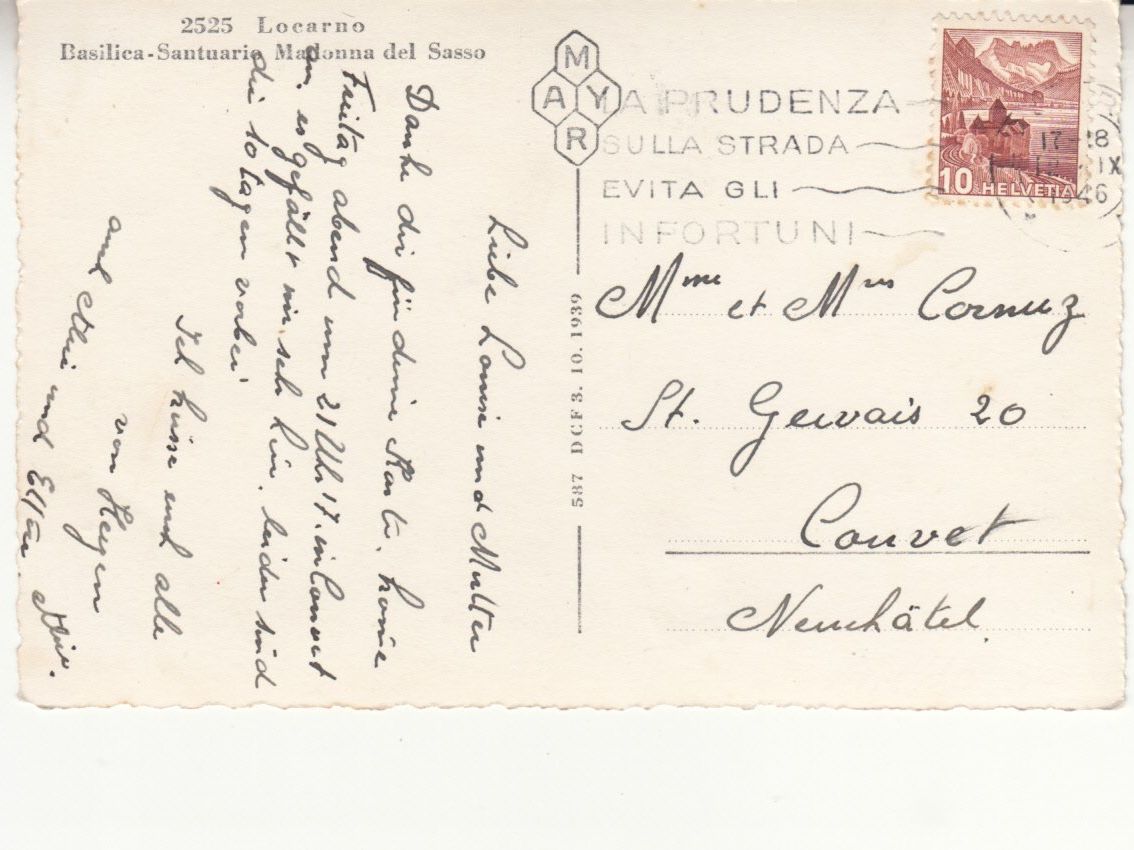 2525 Locarno
Basilica-Santuario Madonna del Sasso
MAYR
LA PRUDENZA
SULLA STRADA
EVITA GLI
INFORTUNI
17-18
IX
1946
10 HELVETIA
587 DCF 3. 10. 1939
Liebe Louise und Mutter
Danke dir für deine Karte. komme
Freitag abend um 21 Uhr 17. in Couvet
an, es gefällt mir seh hir. leider sind
die 10 tagen vorbei
Ich küsse euch alle
von Herzen
auch Alli und
Mme et Mrs Cornuz
St. Gervais 20
Couvet
Neuchâtel.